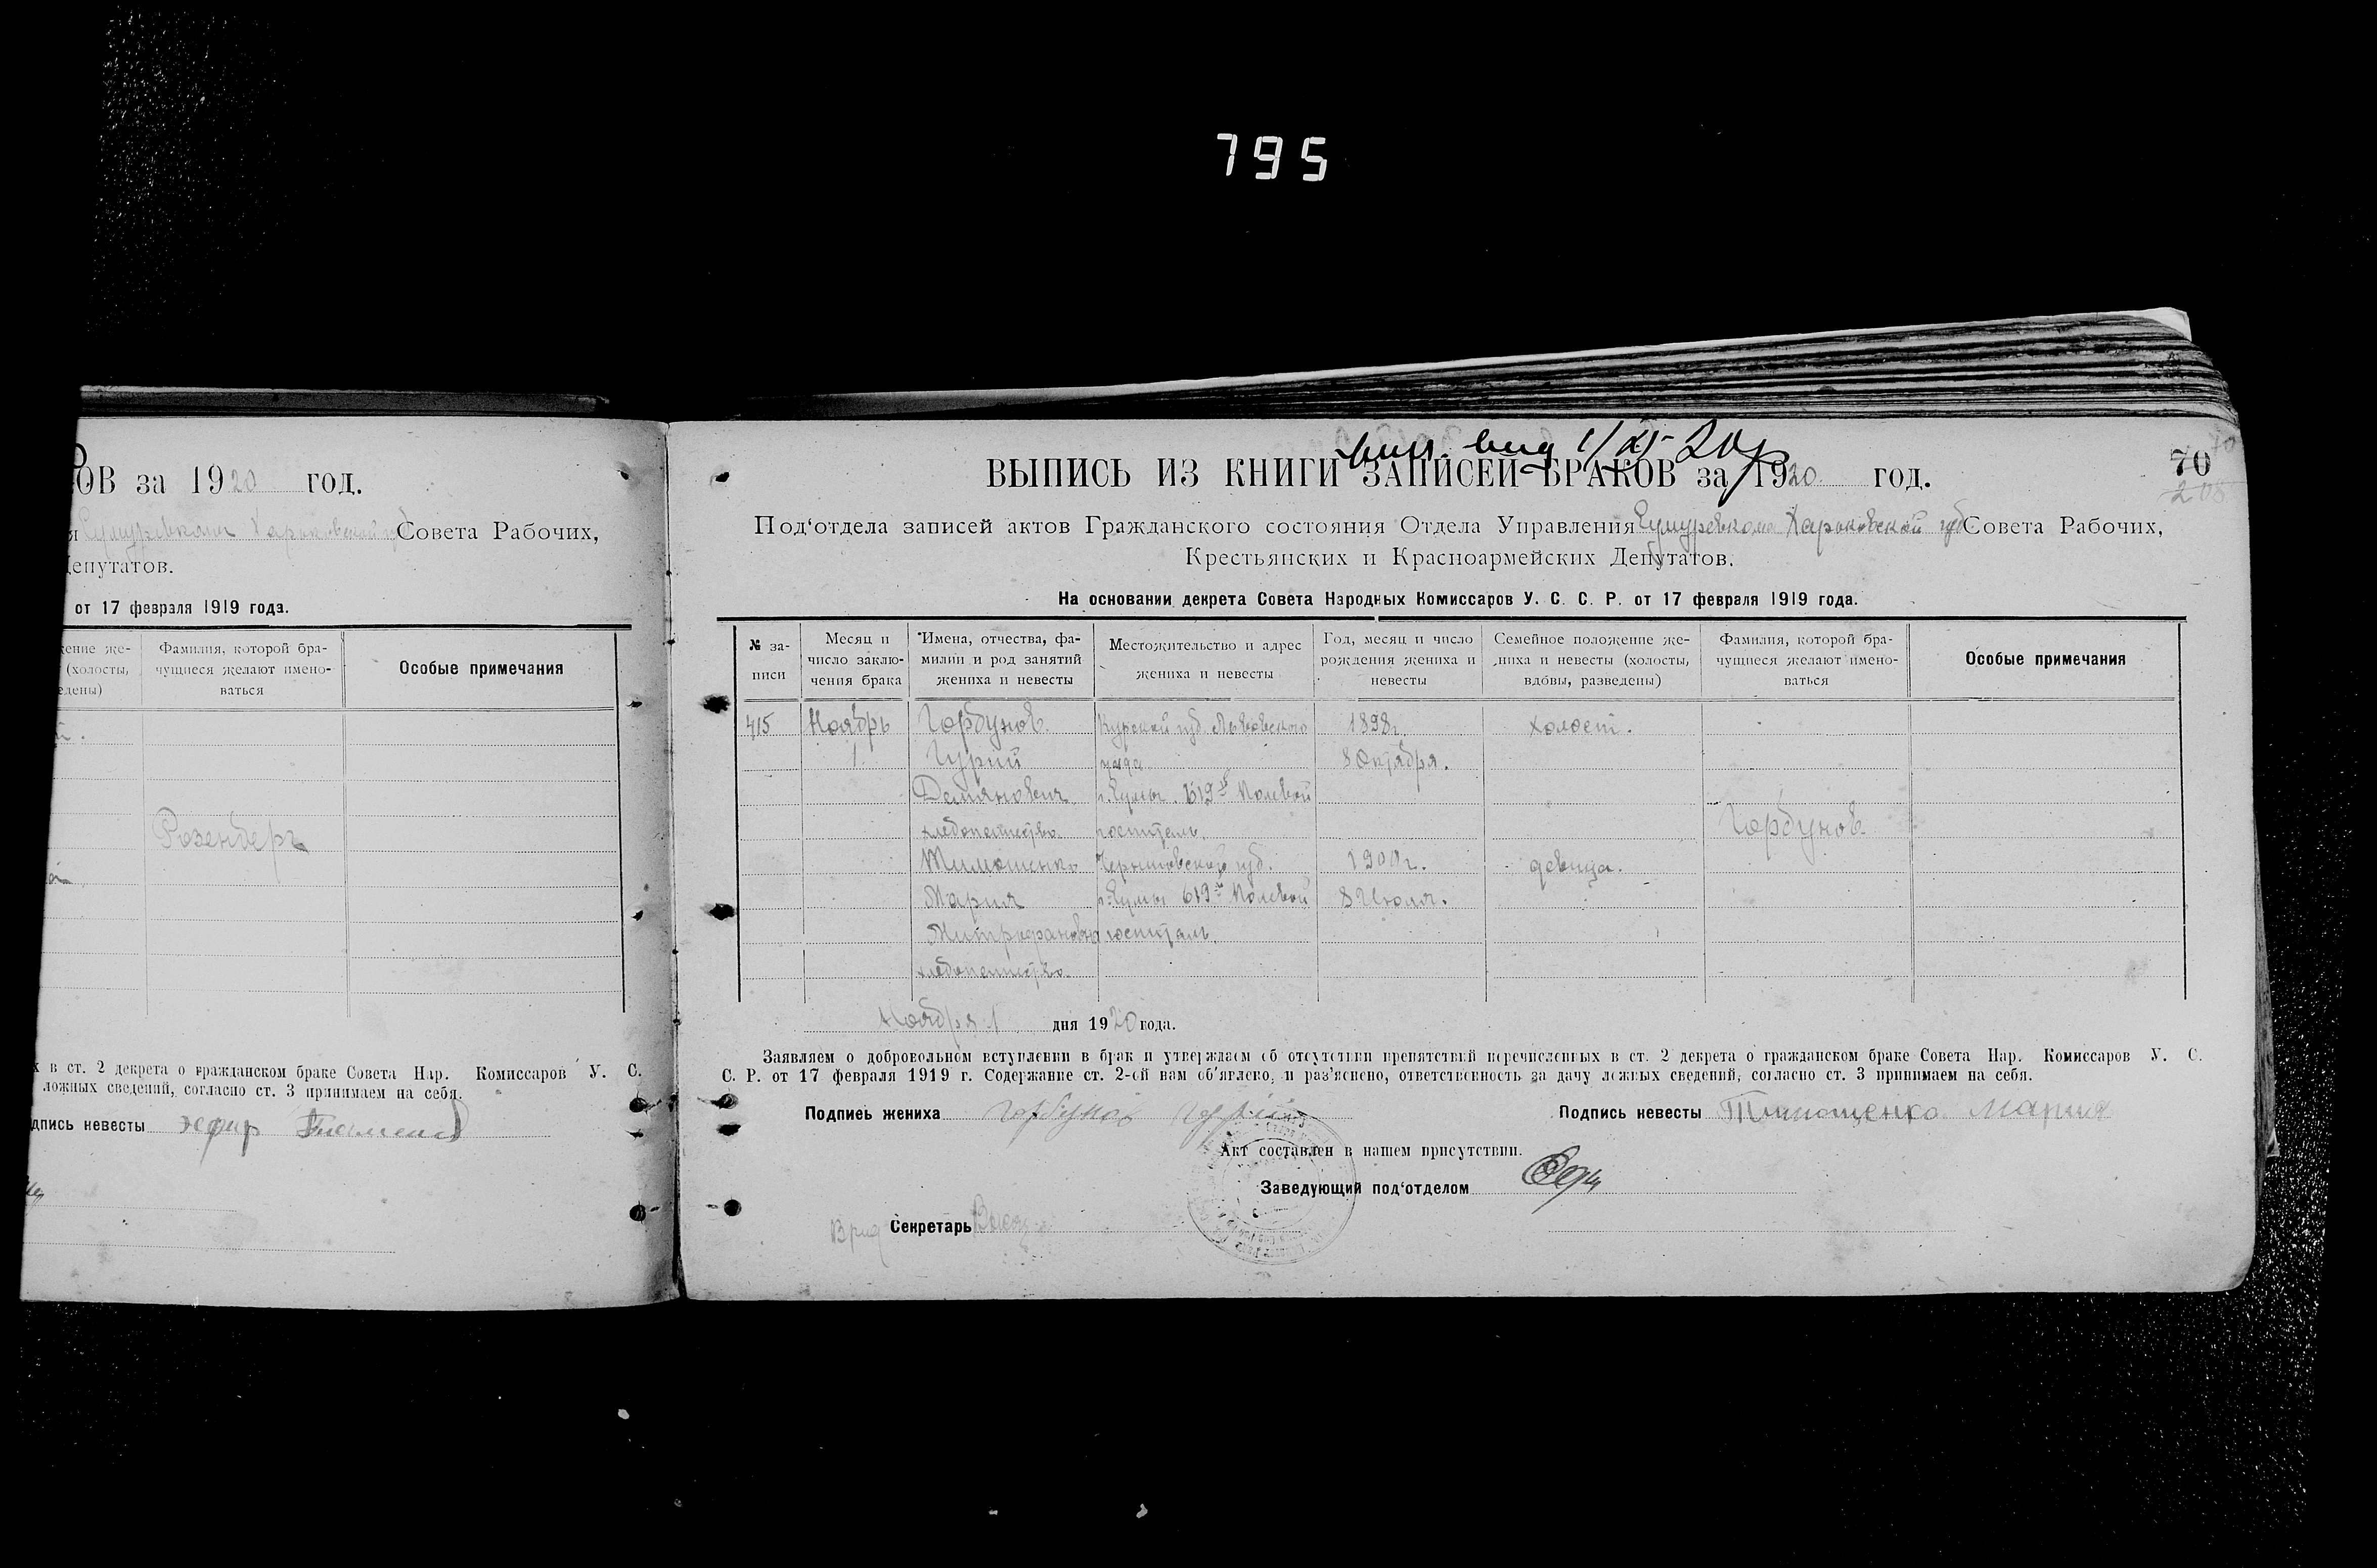 795
ОВ за 1920 год.
Совета Рабочих,
епутатов.
от 17 февраля 1919 года.
ение же-
(холосты,
едены)
Фамилия, которой бра-
чущиеся желают имено-
ваться
Особые примечания
Розенберг
х в ст. 2 декрета о гражданском браке Совета Нар. Комиссаров У. С.
ложных сведений, согласно ст. 3 принимаем на себя.
дпись невесты
вид 1/XI-20
70
ВЫПИСЬ ИЗ КНИГИ ЗАПИСЕЙ БРАКОВ за 1920 год.
208
Под‘отдела записей актов Гражданского состояния Отдела Управления Сумуревкома Харьковской губ Совета Рабочих,
Крестьянских и Красноармейских Депутатов.
На основании декрета Совета Народных Комиссаров У. С. С. Р. от 17 февраля 1919 года.
№ за-
писи
Месяц и
число заклю-
чения брака
Имена, отчества, фа-
милии и род занятий
жениха и невесты
Местожительство и адрес
жениха и невесты
Год, месяц и число
рождения жениха и
невесты
Семейное положение же-
ниха и невесты (холосты,
вдовы, разведены)
Фамилия, которой бра-
чущиеся желают имено-
ваться
Особые примечания
415 Ноябрь Горбунов Курской губ. Львовского 1898г. холост.
1 Гурий уезда 8 Октября.
Демянович г. Сумы. 619й Полевой
хлебопашество госпиталь. Горбунов
Тимошенко Черниговской губ. 1900г. девица.
Мария г. Сумы 619й Полевой 8 Июля.
Митрофановна госпиталь.
хлебопашество.
Ноября 1 дня 1920 года.
Заявляем о добровольном вступлении в брак и утверждаем об отсутствии препятствий перечисленных в ст. 2 декрета о гражданском браке Совета Нар. Комиссаров У. С.
С. Р. от 17 февраля 1919 г. Содержание ст. 2-ой нам об‘явлено, и раз‘яснено, ответственность за дачу ложных сведений, согласно ст. 3 принимаем на себя.
Подпись жениха Горбунов Гурий
Подпись невесты Тимощенко Мария
Акт составлен в нашем присутствии.
Заведующий под‘отделом
Врид Секретарь